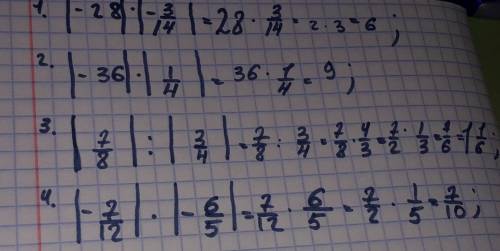 1. |-28| · |-3/14| = 28 · 3/14 = 2 · 3 = 6;
2. |-36| · |1/4| = 36 · 1/4 = 9;
3. |7/8| : |3/4| = 7/8 : 3/4 = 7/8 · 4/3 = 7/2 · 1/3 = 7/6 = 1 1/6;
4. |-7/12| · |-6/5| = 7/12 · 6/5 = 7/2 · 1/5 = 7/10;